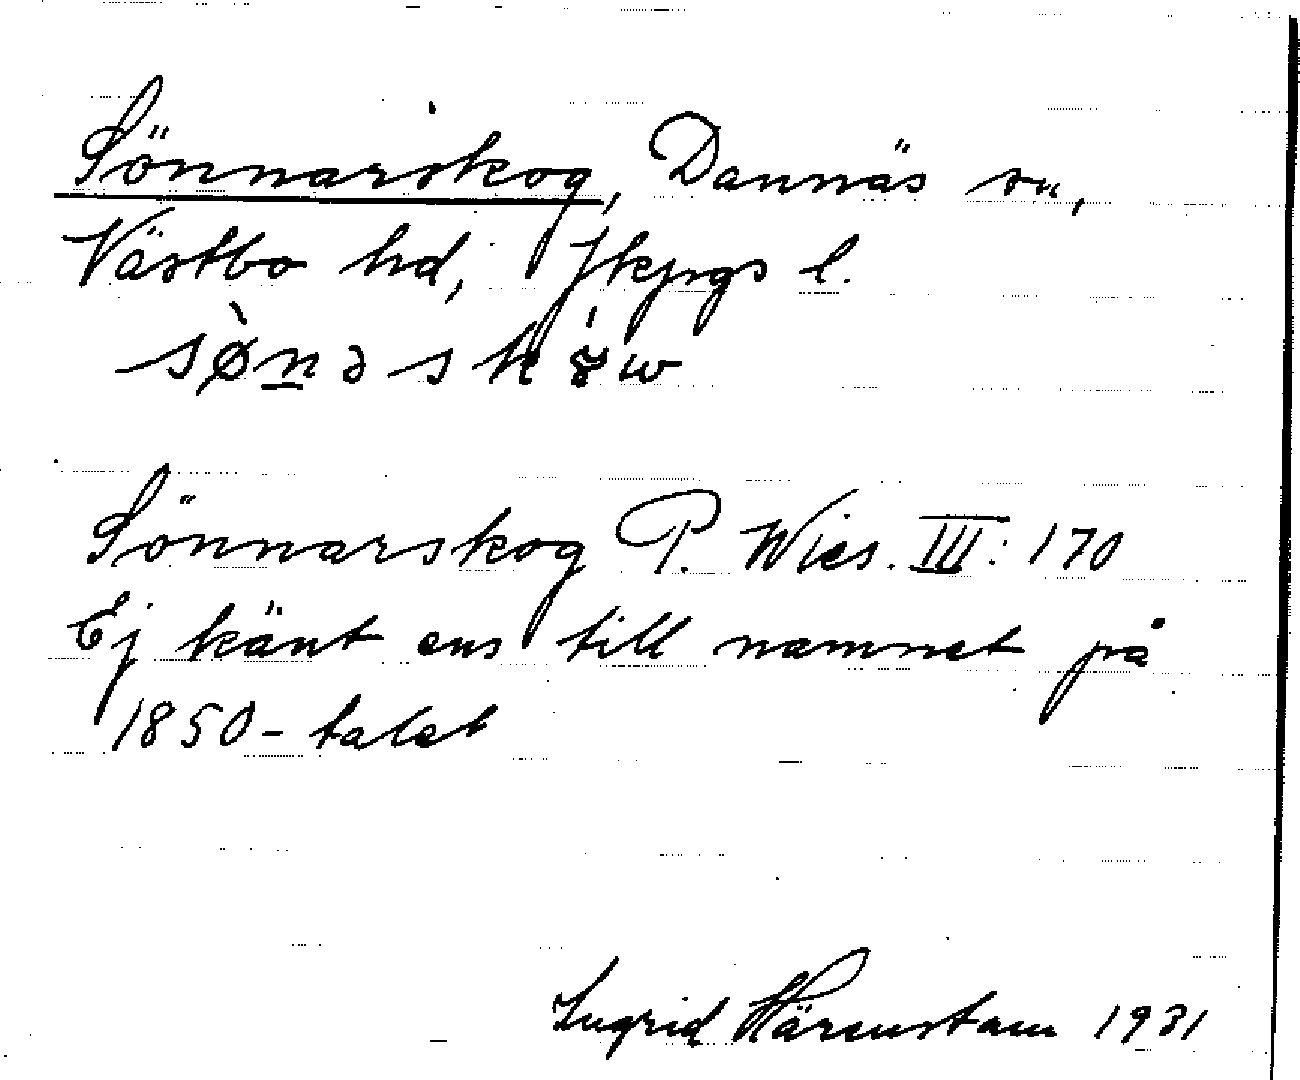 Sönnarskog, Dannäs sn,
Västbo hd, Jkpgs l.
Sönnarskog P. Wies. III: 170
Ej känt ens till namnet på
1850-talet
Ingrid Härenstam 1931